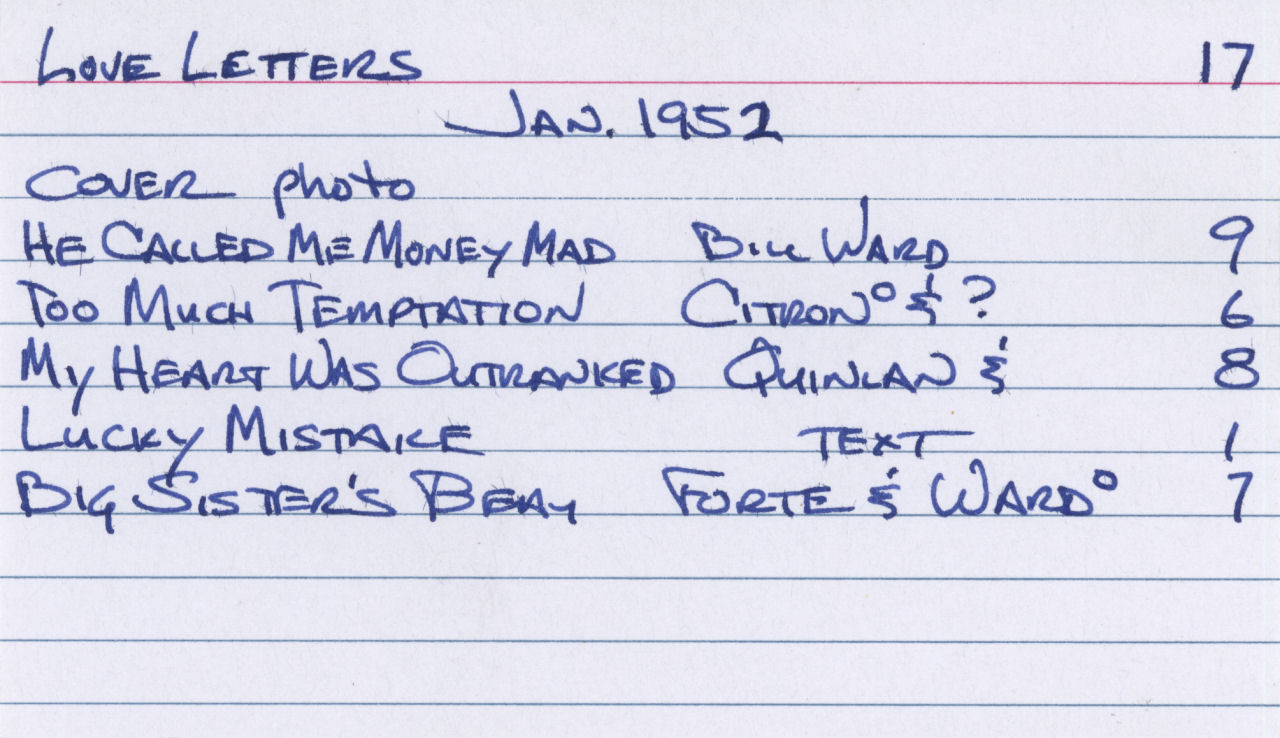 LOVE LETTERS 17
JAN. 1952
COVER photo
HE CALLED ME MONEY MAD BILL WARD 9
TOO MUCH TEMPTATION CITRON° & ? 6
MY HEART WAS OUTRANKED QUINLAN & 8
LUCKY MISTAKE TEXT 1
BIG SISTER'S BEAU FORTE & WARD° 7